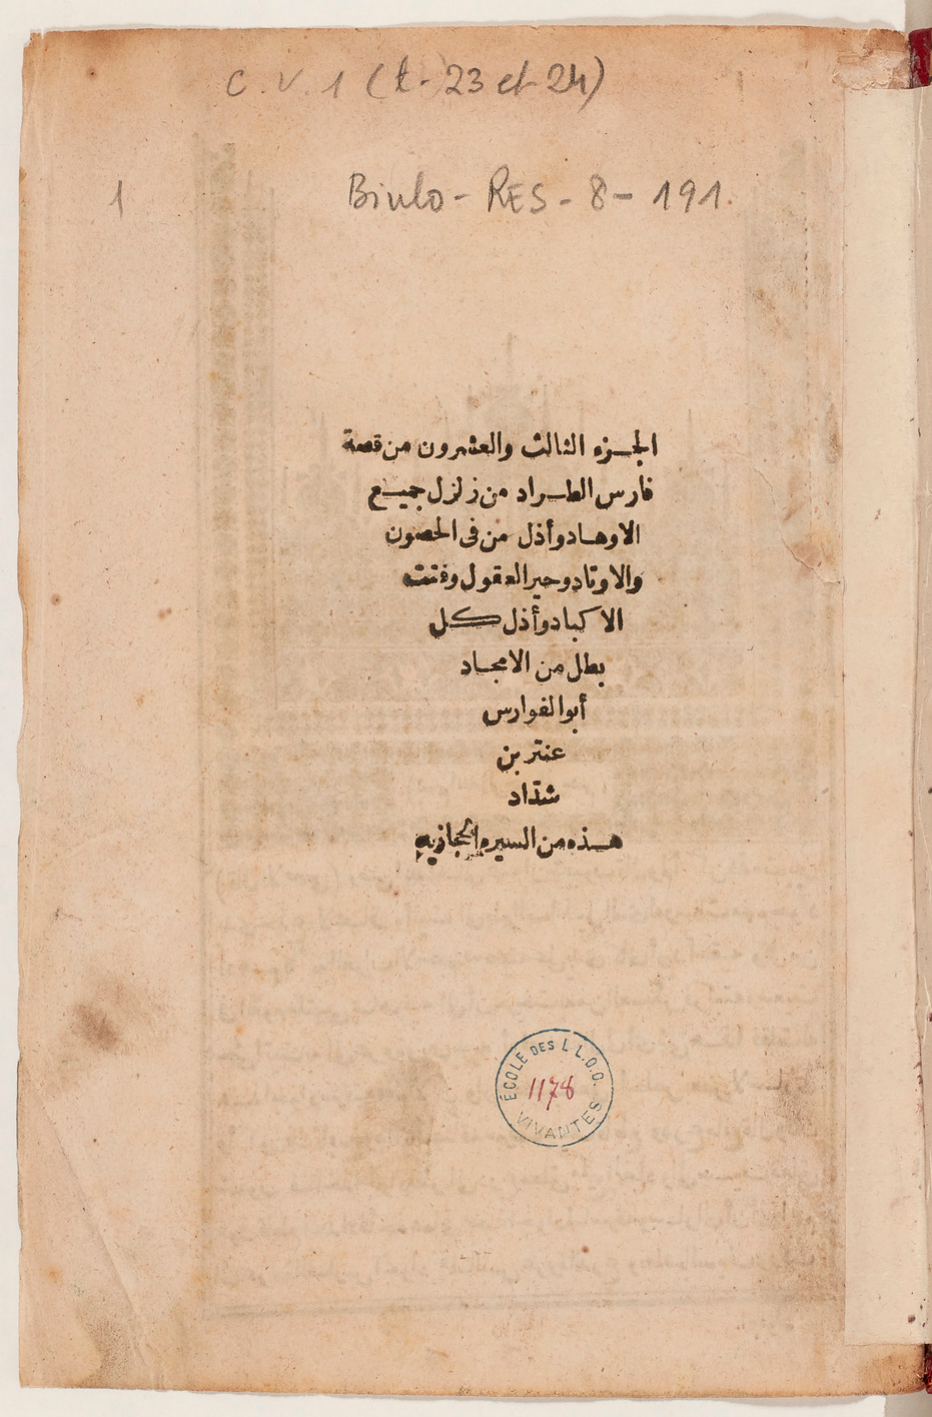 C. V 1 (t. 23 et 24)
1
Biulo - RES - 8 - 191.
الجزء الثالث والعشرون من قصة
فارس الطراد من زلزل جميع
الاوهاد وأذل من فى الحصون
والاوتاد وحير العقول وفتت
الاكباد وأذل كل
بطل من الامجاد
أبوالفوارس
عنتر بن
شداد
هذه من السيره الحجازيه
ÉCOLE DES L L.O.O.
1178
VIVANTES